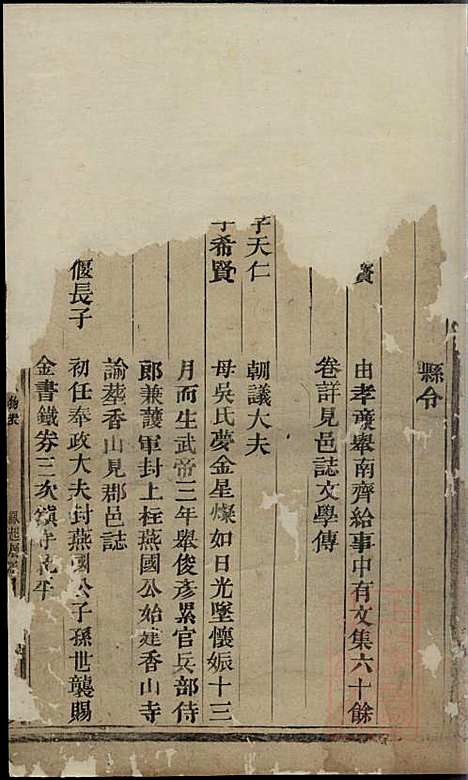 縣令
賢
由孝亷舉南齊給事中有文集六十餘
卷詳見邑誌文學傳
子天仁
朝議大夫
子希賢
母吳氏夢金星燦如日光墜懷娠十三
月而生武帝三年舉俊彥累官兵部侍
郎兼護軍封上柱燕國公始建香山寺
諭葬香山見郡邑誌
偃長子
初任奉政大夫封燕國公子孫世襲賜
金書鐵券三次鎮守平